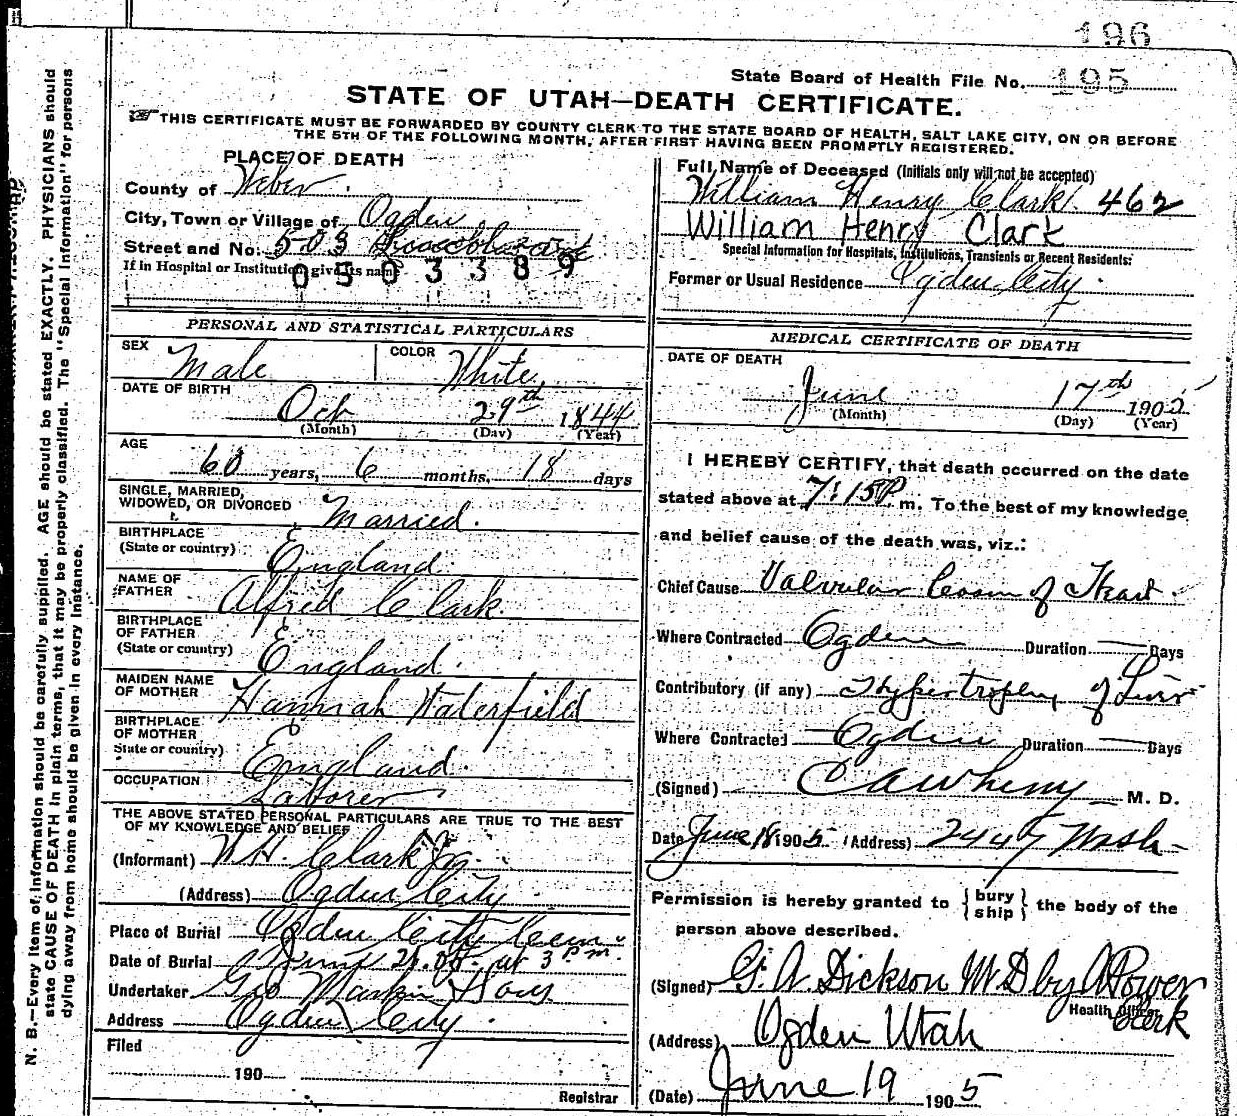 196
State Board of Health File No. 195
STATE OF UTAH—DEATH CERTIFICATE.
THIS CERTIFICATE MUST BE FORWARDED BY COUNTY CLERK TO THE STATE BOARD OF HEALTH, SALT LAKE CITY, ON OR BEFORE
THE 5TH OF THE FOLLOWING MONTH, AFTER FIRST HAVING BEEN PROMPTLY REGISTERED.
N. B.—Every item of information should be carefully supplied. AGE should be stated EXACTLY. PHYSICIANS should
state CAUSE OF DEATH in plain terms, that it may be properly classified. The "Special Information" for persons
dying away from home should be given in every instance.
PLACE OF DEATH
County of Weber
City, Town or Village of Ogden
Street and No. 503
If in Hospital or Institution give its name
0503389
Full Name of Deceased (Initials only will not be accepted)
William Henry Clark 462
William Henry Clark
Special Information for Hospitals, Institutions, Transients or Recent Residents:
Former or Usual Residence Ogden City
PERSONAL AND STATISTICAL PARTICULARS
SEX Male
COLOR White
DATE OF BIRTH
Oct 29th 1844
(Month) (Day) (Year)
AGE
60 years, 6 months, 18 days
SINGLE, MARRIED,
WIDOWED, OR DIVORCED Married.
BIRTHPLACE
(State or country) England
NAME OF
FATHER Alfred Clark
BIRTHPLACE
OF FATHER
(State or country) England.
MAIDEN NAME
OF MOTHER Hannah Waterfield
BIRTHPLACE
OF MOTHER
State or country) England.
OCCUPATION Laborer
THE ABOVE STATED PERSONAL PARTICULARS ARE TRUE TO THE BEST
OF MY KNOWLEDGE AND BELIEF
(Informant) W.H. Clark Jr.
(Address) Ogden City
Place of Burial Ogden City Cem.
Date of Burial June 20.05. at 3 P.m.
Undertaker Geo Larkin & Sons
Address Ogden City.
Filed
190
Registrar
MEDICAL CERTIFICATE OF DEATH
DATE OF DEATH
June 17th 1905
(Month) (Day) (Year)
I HEREBY CERTIFY, that death occurred on the date
stated above at 7:15 P m. To the best of my knowledge
and belief cause of the death was, viz.:
Chief Cause Valvular Lesion of Heart
Where Contracted Ogden Duration — Days
Contributory (if any) Hypertrophy of Liver
Where Contracted Ogden Duration — Days
(Signed) M. D.
Date June 18 1905 (Address) Wash
Permission is hereby granted to { bury ship } the body of the
person above described.
(Signed) G. A. Dickson M D by A Power
Health Officer Clerk
(Address) Ogden Utah
(Date) June 19 1905